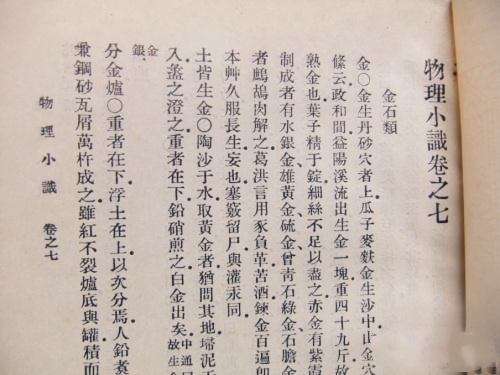 物理小識卷之七
金石類
金○金生丹砂穴者上瓜子麥麩金生沙中止金穴
絛云政和間益陽溪流出生金一塊重四十九斤放
熟金也葉子精于錠細絲不足以盡之赤金有紫霞
制成者有水銀金雄黃金硫金曾青石綠金石膽金
者鷓鴣肉解之葛洪言用冢負革苦酒鍊金百遍卽
本艸久服長生妄也塞竅留尸與灌汞同
土皆生金○陶沙于水取黃金者猶問其地埽泥于
入盞之澄之重者在下鉛硝煎之白金出矣中通曰故生金
金銀
分金爐○重者在下浮土在上以次分焉人鉛煮
汞鋼砂瓦屑萬杵成之雖紅不裂爐底與罐積而
物理小識 卷之七